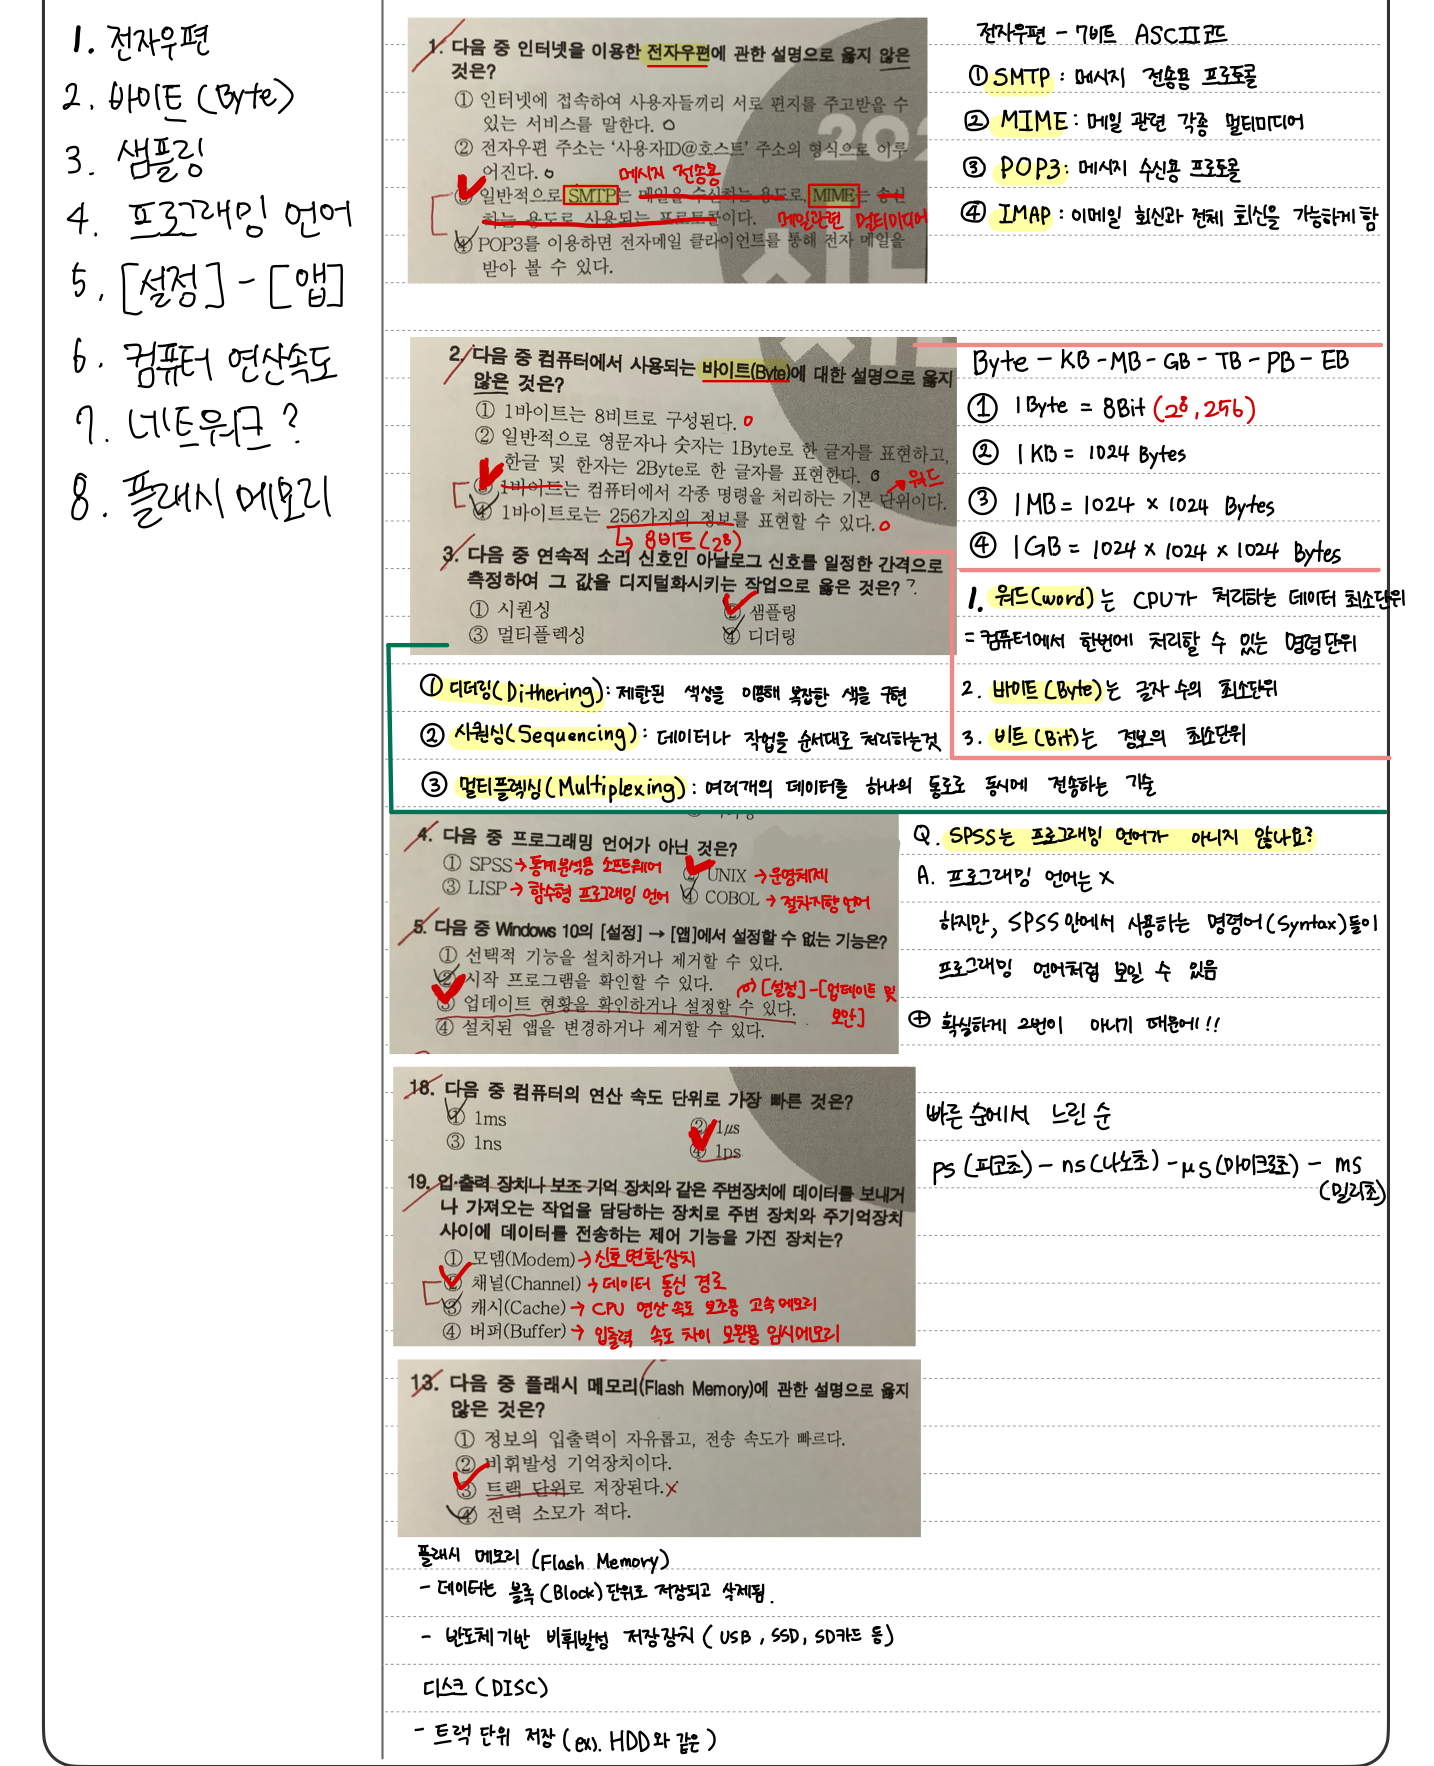 1. 전자우편
2. 바이트 (Byte)
3. 샘플링
4. 프로그래밍 언어
5. [설정] - [앱]
6. 컴퓨터 연산속도
7. 네트워크?
8. 플래시 메모리
1. 다음 중 인터넷을 이용한 전자우편에 관한 설명으로 옳지 않은
것은?
① 인터넷에 접속하여 사용자들끼리 서로 편지를 주고받을 수
있는 서비스를 말한다. O
② 전자우편 주소는 '사용자ID@호스트' 주소의 형식으로 이루
어진다. O
메시지 전송용
③ 일반적으로 SMTP는 메일을 수신하는 용도로, MIME는 송신
하는 용도로 사용되는 프로토콜이다. 메일관련 멀티미디어
④ POP3를 이용하면 전자메일 클라이언트를 통해 전자 메일을
받아 볼 수 있다.
202
전자우편 - 7비트 ASCII코드
① SMTP : 메시지 전송용 프로토콜
② MIME : 메일 관련 각종 멀티미디어
③ POP3 : 메시지 수신용 프로토콜
④ IMAP : 이메일 회신과 전체 회신을 가능하게 함
2. 다음 중 컴퓨터에서 사용되는 바이트(Byte)에 대한 설명으로 옳지
않은 것은?
① 1바이트는 8비트로 구성된다. O
② 일반적으로 영문자나 숫자는 1Byte로 한 글자를 표현하고,
한글 및 한자는 2Byte로 한 글자를 표현한다. O
→ 워드
③ 1바이트는 컴퓨터에서 각종 명령을 처리하는 기본 단위이다.
④ 1바이트로는 256가지의 정보를 표현할 수 있다. O
↳ 8비트 (2⁸)
3. 다음 중 연속적 소리 신호인 아날로그 신호를 일정한 간격으로
측정하여 그 값을 디지털화시키는 작업으로 옳은 것은? ?
① 시퀀싱 ② 샘플링
③ 멀티플렉싱 ④ 디더링
Byte - KB - MB - GB - TB - PB - EB
① 1Byte = 8Bit (2⁸, 256)
② 1KB = 1024 Bytes
③ 1MB = 1024 × 1024 Bytes
④ 1GB = 1024 × 1024 × 1024 Bytes
1. 워드(word)는 CPU가 처리하는 데이터 최소단위
= 컴퓨터에서 한번에 처리할 수 있는 명령단위
2. 바이트(Byte)는 글자 수의 최소단위
3. 비트(Bit)는 정보의 최소단위
① 디더링(Dithering) : 제한된 색상을 이용해 복잡한 색을 구현
② 시퀀싱(Sequencing) : 데이터나 작업을 순서대로 처리하는것
③ 멀티플렉싱(Multiplexing) : 여러개의 데이터를 하나의 통로로 동시에 전송하는 기술
4. 다음 중 프로그래밍 언어가 아닌 것은?
① SPSS → 통계분석용 소프트웨어 ② UNIX → 운영체제
③ LISP → 함수형 프로그래밍 언어 ④ COBOL → 절차지향언어
5. 다음 중 Windows 10의 [설정] → [앱]에서 설정할 수 없는 기능은?
① 선택적 기능을 설치하거나 제거할 수 있다.
② 시작 프로그램을 확인할 수 있다. → [설정]-[업데이트 및
③ 업데이트 현황을 확인하거나 설정할 수 있다. 보안]
④ 설치된 앱을 변경하거나 제거할 수 있다.
Q. SPSS는 프로그래밍 언어가 아니지 않나요?
A. 프로그래밍 언어는 X
하지만, SPSS 안에서 사용하는 명령어(Syntax)들이
프로그래밍 언어처럼 보일 수 있음
⊕ 확실하게 2번이 아니기 때문에!!
18. 다음 중 컴퓨터의 연산 속도 단위로 가장 빠른 것은?
① 1ms ② 1μs
③ 1ns ④ 1ps
19. 입·출력 장치나 보조 기억 장치와 같은 주변장치에 데이터를 보내거
나 가져오는 작업을 담당하는 장치로 주변 장치와 주기억장치
사이에 데이터를 전송하는 제어 기능을 가진 장치는?
① 모뎀(Modem) → 신호변환장치
② 채널(Channel) → 데이터 통신 경로
③ 캐시(Cache) → CPU 연산 속도 보조용 고속메모리
④ 버퍼(Buffer) → 입출력 속도 차이 보완용 임시메모리
빠른 순에서 느린 순
ps (피코초) - ns (나노초) - μs (마이크로초) - ms
(밀리초)
13. 다음 중 플래시 메모리(Flash Memory)에 관한 설명으로 옳지
않은 것은?
① 정보의 입출력이 자유롭고, 전송 속도가 빠르다.
② 비휘발성 기억장치이다.
③ 트랙 단위로 저장된다. X
④ 전력 소모가 적다.
플래시 메모리 (Flash Memory)
- 데이터는 블록(Block)단위로 저장되고 삭제됨.
- 반도체기반 비휘발성 저장장치 (USB, SSD, SD카드 등)
디스크 (DISC)
- 트랙 단위 저장 (ex). HDD와 같은)